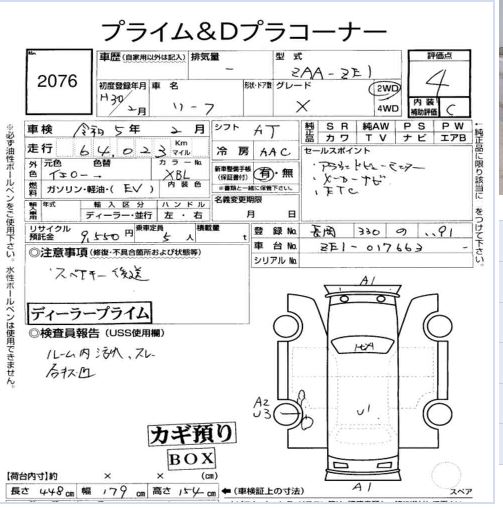 プライム&Dプラコーナー
2076
車歴 (自家用以外は記入)
排気量
-
型式
ZAA-ZE1
評価点
4
内装
補助評価
C
初度登録年月
H30年2月
車名
リーフ
形状・ドア数
グレード
X
2WD
4WD
車検
令和5年2月
シフト
AT
純正品
SR
純AW
PS
PW
カワ
TV
ナビ
エアB
走行
64,023
Km
マイル
冷房
AAC
セールスポイント
メーカーナビ
ETC
外色
元色
色替
カラーNo.
イエロー→
XBL
燃料
ガソリン・軽油・(EV)
内装色
新車整備手帳
(保証書付)
有・無
※書類と一緒に保管下さい。
輸入車用
年式
輸入区分
ハンドル
ディーラー・並行
左・右
名義変更期限
月 日
リサイクル預託金
9,550円
乗車定員
5人
積載量
t
登録No.
長岡 330 の ・・91
車台No.
ZE1-017663
シリアルNo.
◎注意事項 (修復・不具合箇所および状態等)
スペアキー後送
ディーラープライム
◎検査員報告 (USS使用欄)
ルーム内汚れ、スレ
カギ預り
BOX
【荷台内寸】約 × × (cm)
長さ 448cm 幅 179cm 高さ 154cm
←(車検証上の寸法)
A1
A2
U3
U1
A1
スペア
※必ず油性ボールペンをご使用下さい。水性ボールペンは使用できません。
↑純正品に限り該当に○をつけて下さい。